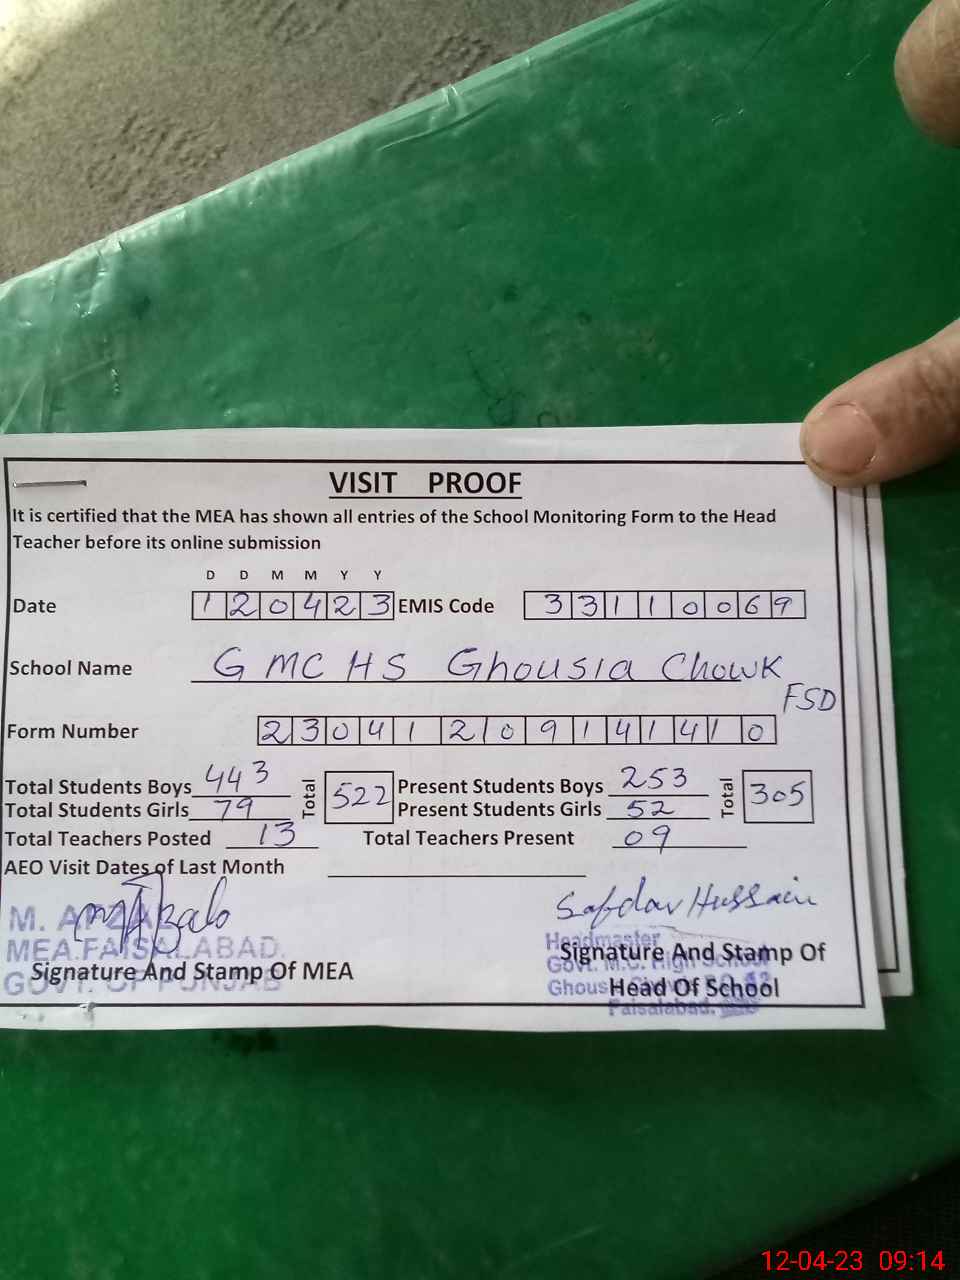 VISIT PROOF
It is certified that the MEA has shown all entries of the School Monitoring Form to the Head
Teacher before its online submission
D D M M Y Y
Date 1 2 0 4 2 3 EMIS Code 3 3 1 1 0 0 6 9
School Name G MC HS Ghousia Chowk
FSD
Form Number 2 3 0 4 1 2 0 9 1 4 1 4 1 0
Total Students Boys 443 Total 522 Present Students Boys 253 Total 305
Total Students Girls 79 Present Students Girls 52
Total Teachers Posted 13 Total Teachers Present 09
AEO Visit Dates of Last Month
Safdar Hussain
M. AFZAL
MEA.FAISALABAD.
GOVT. OF PUNJAB
Signature And Stamp Of MEA
Headmaster
Govt. M.C. High School
Faisalabad.
Signature And Stamp Of
Head Of School
12-04-23 09:14